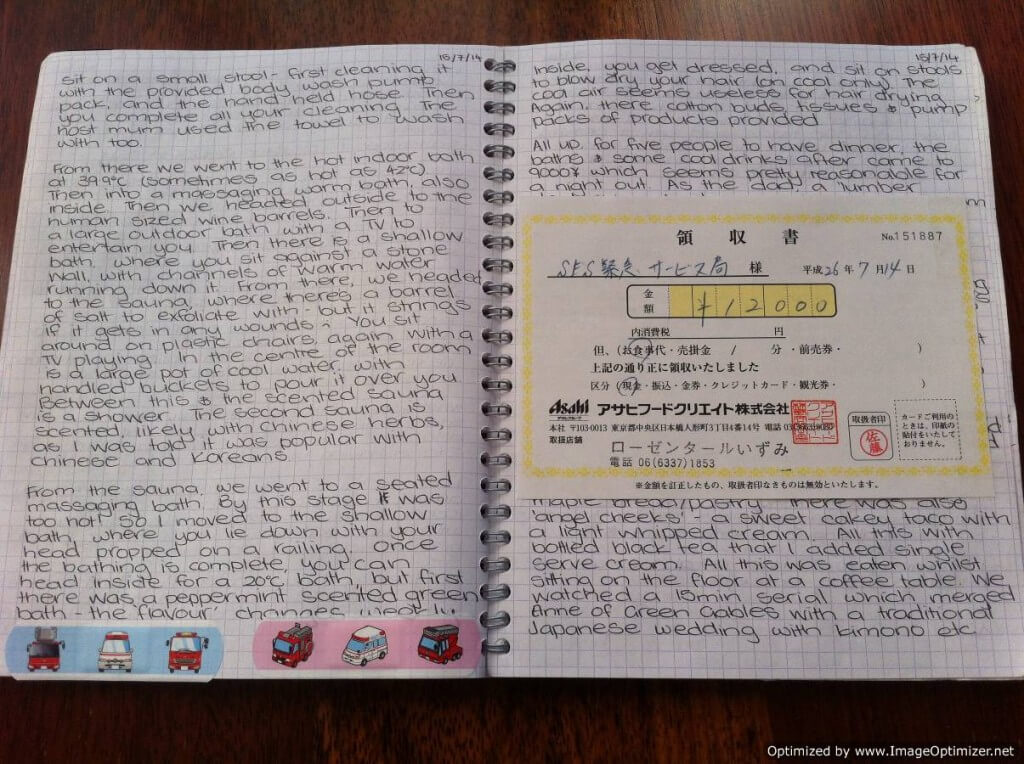 15/7/14
sit on a small stool - first cleaning it
with the provided body wash pump
pack, and the hand held hose. Then
you complete all your cleaning. The
host mum used the towel to wash
with too.
From there we went to the hot indoor bath
at 39.9°c (sometimes as hot as 42°c).
Then into a massaging warm bath, also
inside. Then we headed outside to the
human sized wine barrels. Then to
a large outdoor bath with a TV to
entertain you. Then there is a shallow
bath, where you sit against a stone
wall, with channels of warm water
running down it. From there, we headed
to the sauna, where there's a barrel
of salt to exfoliate with - but it strings
if it gets in any wounds. You sit
around on plastic chairs, again with a
TV playing. In the centre of the room
is a large pot of cool water, with
handled buckets to pour it over you.
Between this & the scented sauna
is a shower. The second sauna is
scented, likely with chinese herbs,
as I was told it was popular with
chinese and Koreans.
From the sauna, we went to a seated
massaging bath. By this stage it was
too hot! So I moved to the shallow
bath, where you lie down with your
head propped on a railing. Once
the bathing is complete, you can
head inside for a 20°c bath, but first
there was a peppermint scented green
bath - the 'flavour' changes
15/7/14
Inside, you get dressed, and sit on stools
to blow dry your hair (on cool only). The
cool air seems useless for hair drying.
Again, there cotton buds, tissues & pump
packs of products provided.
All up, for five people to have dinner, the
baths & some cool drinks after came to
9000¥ which seems pretty reasonable for
a night out. As the dad, a 'lumber
領収書
No.151887
SES緊急サービス局 様
平成26年7月14日
金額 ¥12000
内消費税 円
但、(お食事代・売掛金 / 分・前売券・ )
上記の通り正に領収いたしました
区分(現金・振込・金券・クレジットカード・観光券・ )
Asahi アサヒフードクリエイト株式会社
本社 〒103-0013 東京都中央区日本橋人形町3丁目4番14号 電話
取扱店舗
ローゼンタールいずみ
電話 06(6337)1853
取扱者印
佐藤
カードご利用の
ときは、印紙の
貼付をいたして
おりません。
※金額を訂正したもの、取扱者印なきものは無効といたします。
maple bread/pastry. There was also
'angel cheeks' - a sweet cakey taco with
a light whipped cream. All this with
bottled black tea that I added single
serve cream. All this was eaten whilst
sitting on the floor at a coffee table. We
watched a 15min serial which merged
Anne of Green Gables with a traditional
Japanese wedding with kimono etc
Optimized by www.ImageOptimizer.net